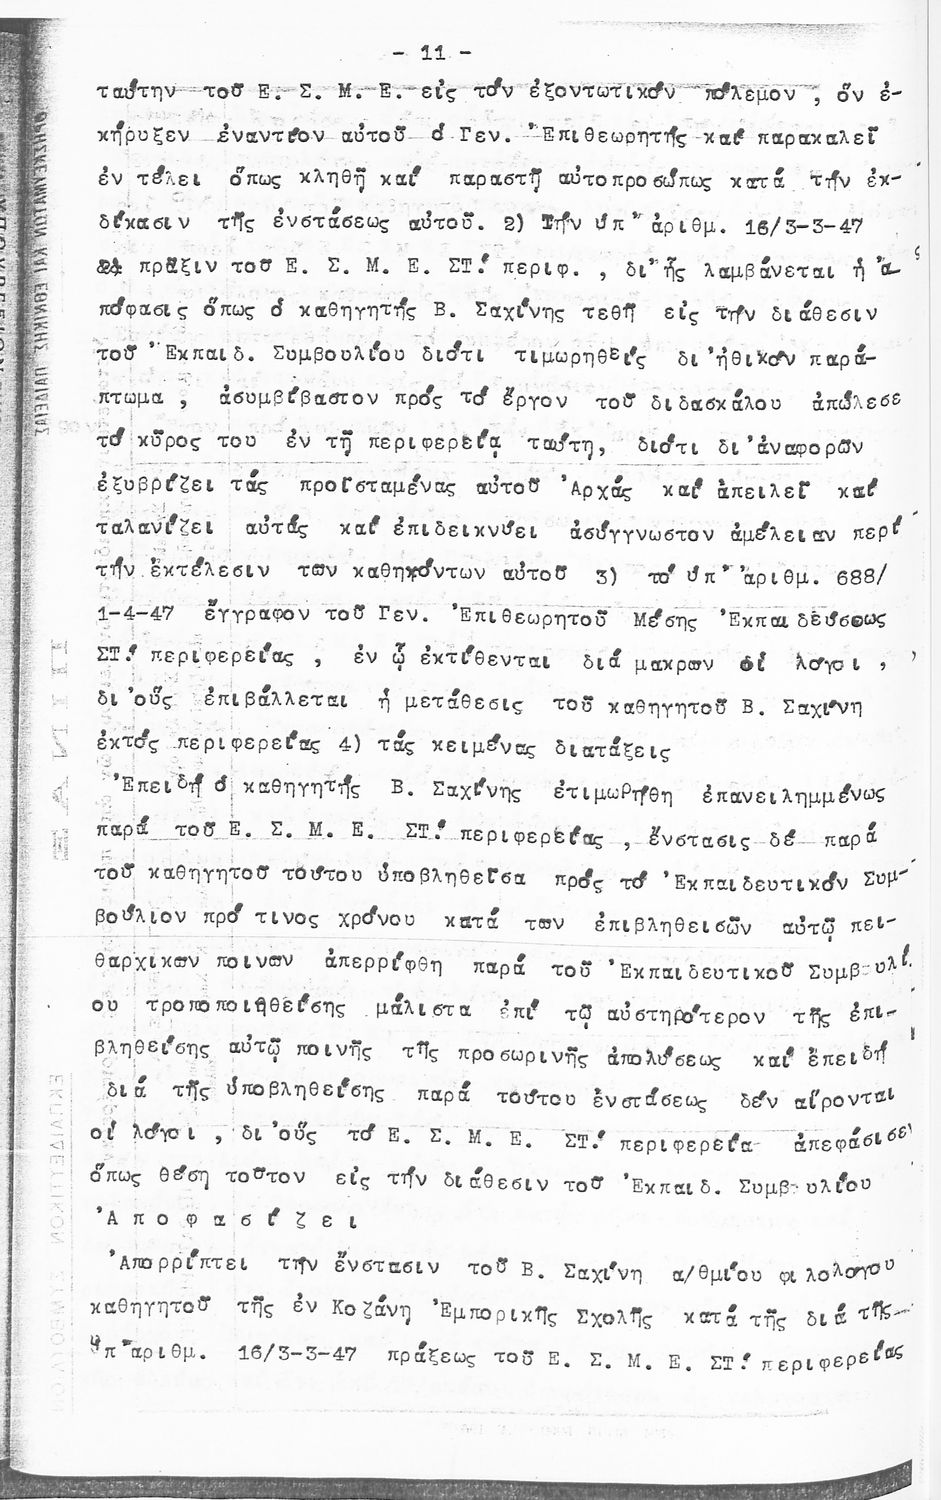 - 11 -
ταύτην τοῦ Ε. Σ. Μ. Ε. εἰς τόν ἐξοντωτικόν πόλεμον , ὅν ἐ-
κήρυξεν ἐναντίον αὐτοῦ ὁ Γεν. Ἐπιθεωρητής καί παρακαλεῖ
ἐν τέλει ὅπως κληθῇ καί παραστῇ αὐτοπροσώπως κατά τήν ἐκ-
δίκασιν τῆς ἐνστάσεως αὐτοῦ. 2) Τήν ὑπ' ἀριθμ. 16/3-3-47
πρᾶξιν τοῦ Ε. Σ. Μ. Ε. ΣΤ! περιφ. , δι' ἧς λαμβάνεται ἡ ἀ-
πόφασις ὅπως ὁ καθηγητής Β. Σαχίνης τεθῇ εἰς τήν διάθεσιν
τοῦ Ἐκπαιδ. Συμβουλίου διότι τιμωρηθείς δι' ἠθικόν παρά-
πτωμα , ἀσυμβίβαστον πρός τό ἔργον τοῦ διδασκάλου ἀπώλεσε
τό κῦρος του ἐν τῇ περιφερείᾳ ταύτῃ, διότι δι' ἀναφορῶν
ἐξυβρίζει τάς προϊσταμένας αὐτοῦ Ἀρχάς καί ἀπειλεῖ καί
ταλανίζει αὐτάς καί ἐπιδεικνύει ἀσύγγνωστον ἀμέλειαν περί
τήν ἐκτέλεσιν τῶν καθηκόντων αὐτοῦ 3) τό ὑπ' ἀριθμ. 688/
1-4-47 ἔγγραφον τοῦ Γεν. Ἐπιθεωρητοῦ Μέσης Ἐκπαιδεύσεως
ΣΤ! περιφερείας , ἐν ᾧ ἐκτίθενται διά μακρῶν οἱ λόγοι ,
δι' οὕς ἐπιβάλλεται ἡ μετάθεσις τοῦ καθηγητοῦ Β. Σαχίνη
ἐκτός περιφερείας 4) τάς κειμένας διατάξεις
Ἐπειδή ὁ καθηγητής Β. Σαχίνης ἐτιμωρήθη ἐπανειλημμένως
παρά τοῦ Ε. Σ. Μ. Ε. ΣΤ! περιφερείας , ἔνστασις δέ παρά
τοῦ καθηγητοῦ τούτου ὑποβληθεῖσα πρός τό Ἐκπαιδευτικόν Συμ-
βούλιον πρό τινος χρόνου κατά τῶν ἐπιβληθεισῶν αὐτῷ πει-
θαρχικῶν ποινῶν ἀπερρίφθη παρά τοῦ Ἐκπαιδευτικοῦ Συμβουλί-
ου τροποποιηθείσης μάλιστα ἐπί τῷ αὐστηρότερον τῆς ἐπι-
βληθείσης αὐτῷ ποινῆς τῆς προσωρινῆς ἀπολύσεως καί ἐπειδή
διά τῆς ὑποβληθείσης παρά τούτου ἐνστάσεως δέν αἴρονται
οἱ λόγοι , δι' οὕς τό Ε. Σ. Μ. Ε. ΣΤ! περιφερεία ἀπεφάσισε
ὅπως θέσῃ τοῦτον εἰς τήν διάθεσιν τοῦ Ἐκπαιδ. Συμβουλίου
Ἀ π ο φ α σ ί ζ ε ι
Ἀπορρίπτει τήν ἔνστασιν τοῦ Β. Σαχίνη α/θμίου φιλολόγου
καθηγητοῦ τῆς ἐν Κοζάνῃ Ἐμπορικῆς Σχολῆς κατά τῆς διά τῆς
ὑπ' ἀριθμ. 16/3-3-47 πράξεως τοῦ Ε. Σ. Μ. Ε. ΣΤ! περιφερείας